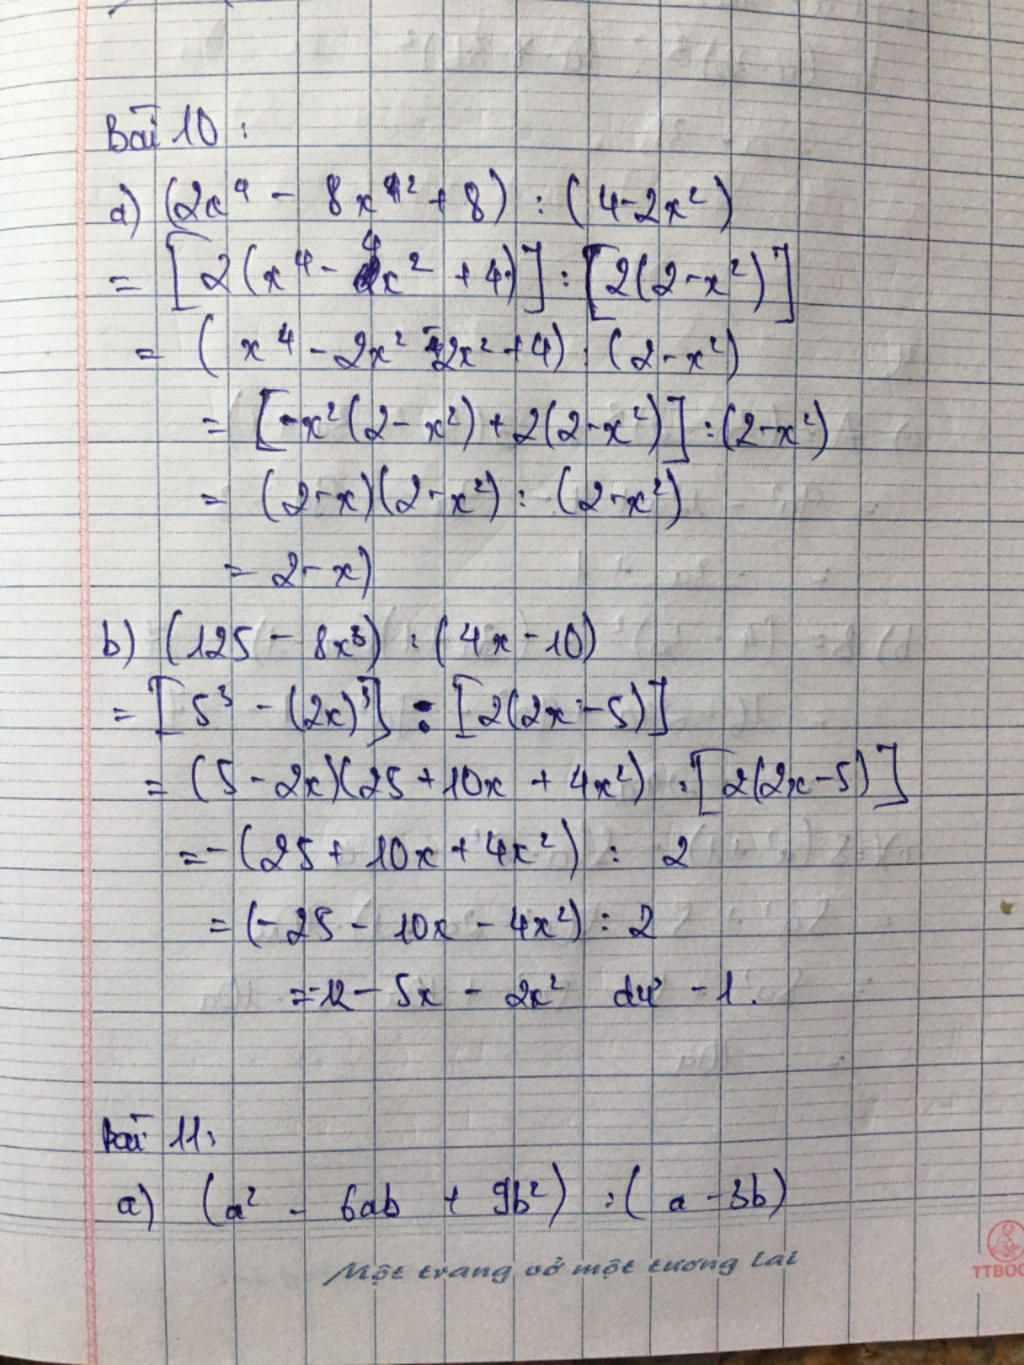 Bài 10 :
a) (2x⁴ - 8x² + 8) : (4-2x²)
= [2(x⁴ - 4x² + 4)] : [2(2-x²)]
= (x⁴ - 2x² - 2x² + 4) : (2-x²)
= [-x²(2-x²) + 2(2-x²)] : (2-x²)
= (2-x)(2-x²) : (2-x²)
= 2-x)
b) (125 - 8x³) : (4x-10)
= [5³ - (2x)³] : [2(2x-5)]
= (5-2x)(25+10x + 4x²) : [2(2x-5)]
= -(25 + 10x + 4x²) : 2
= (-25 - 10x - 4x²) : 2
= -12 - 5x - 2x² dư -1.
Bài 11:
a) (a² - 6ab + 9b²) : (a-3b)
Một trang vở một tương lai